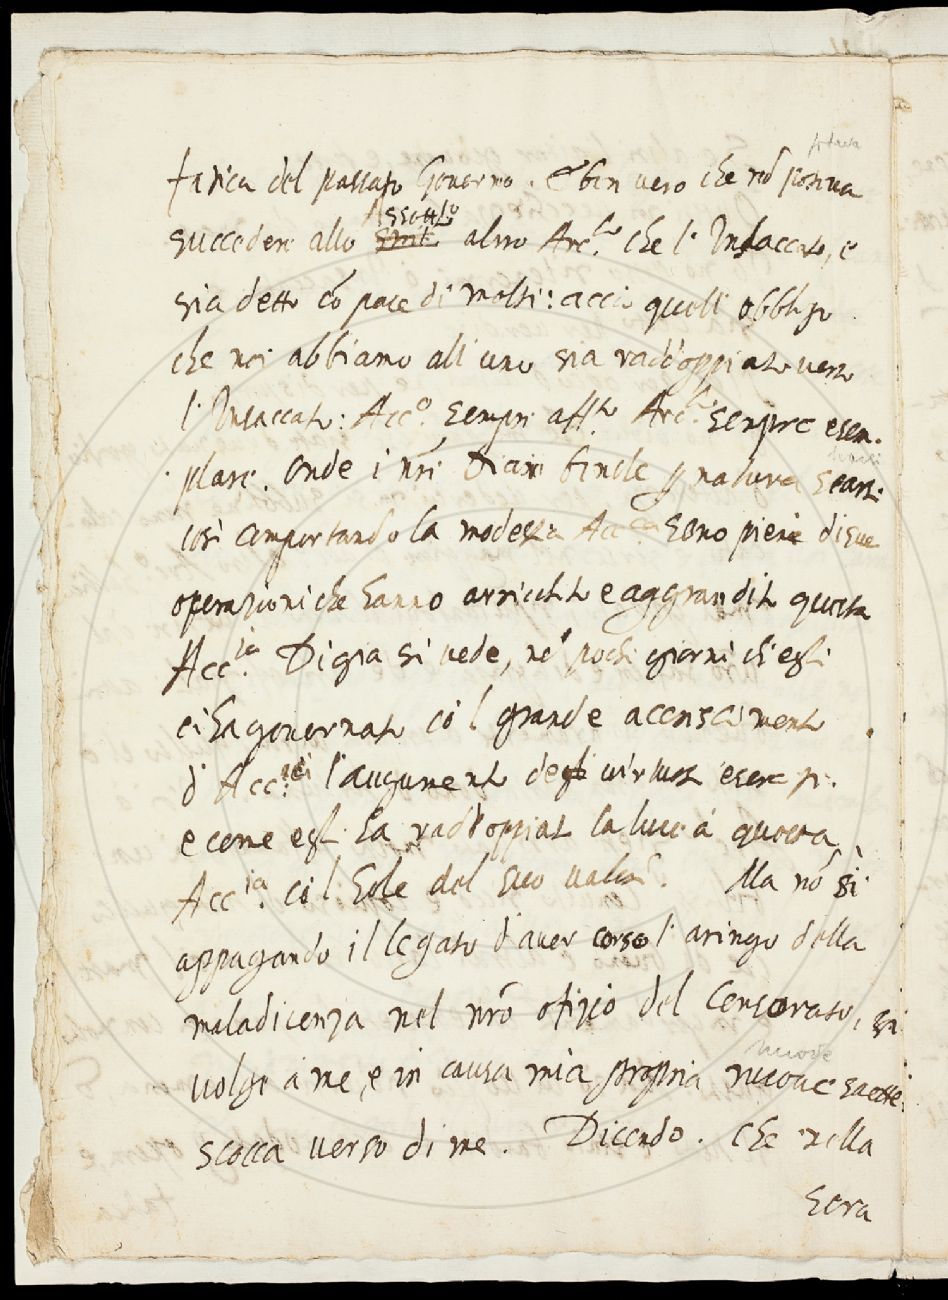 poteva
fatica del passato Governo. È ben vero che nō poteva
succedere allo Assottto altro Arc.lo che l'Insaccato, e
sia detto cō pace di molti: acciò quell' obbligo
che noi abbiamo all'uno sia raddoppiato verso
l'Insaccato: Acc.o sempre aff.to Arc.lo sempre esem-
plare. Onde i nr̄i Diari benche p natura scarsi
così comportando la modestia Acc.ca sono pieni di sue
operazioni che hanno arricchito e aggrandito questa
Acc.ia Digia si vede, ne' pochi giorni ch'egli
ci ha governato cō l grande accrescimento
d'Acc.ici l'augumento degli virtuosi eserczi.
e come egli ha raddoppiato la luce à questa
Acc.ia cō l Sole del suo valore. Ma nō si
appagando il legato d'aver corso l'aringo della
maladicenza nel nr̄o ofizio del Censorato, si
nuove
volge a me, e in causa mia propria nuove saette
scocca verso di me. Dicendo. che nella
sera